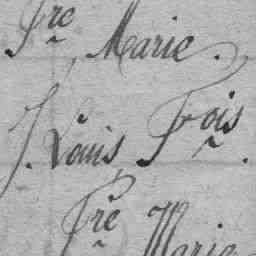 Fre Marie.
J. Louis Fois.
Fre Marie